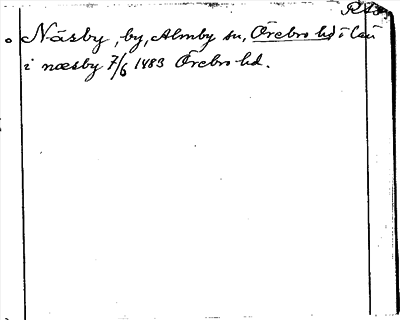 Näsby, by, Almby sn, Örebro hd o län
i næsby 7/6 1483 Örebro hd.